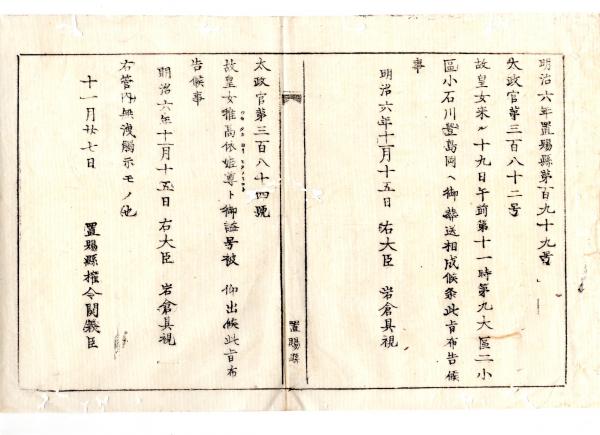 明治六年置賜縣第百九十九号
太政官第三百八十二号
故皇女来ル十九日午前第十一時第九大區二小
區小石川豊島岡ヘ御葬送相成候条此旨布告候
事
明治六年十一月十五日 右大臣 岩倉具視
置賜縣
太政官第三百八十四號
故皇女稚高依姫尊ト御謚号被 仰出候此旨布
告候事
明治六年十一月十五日 右大臣 岩倉具視
右管内無洩觸示モノ也
十一月廿七日 置賜縣権令関義臣